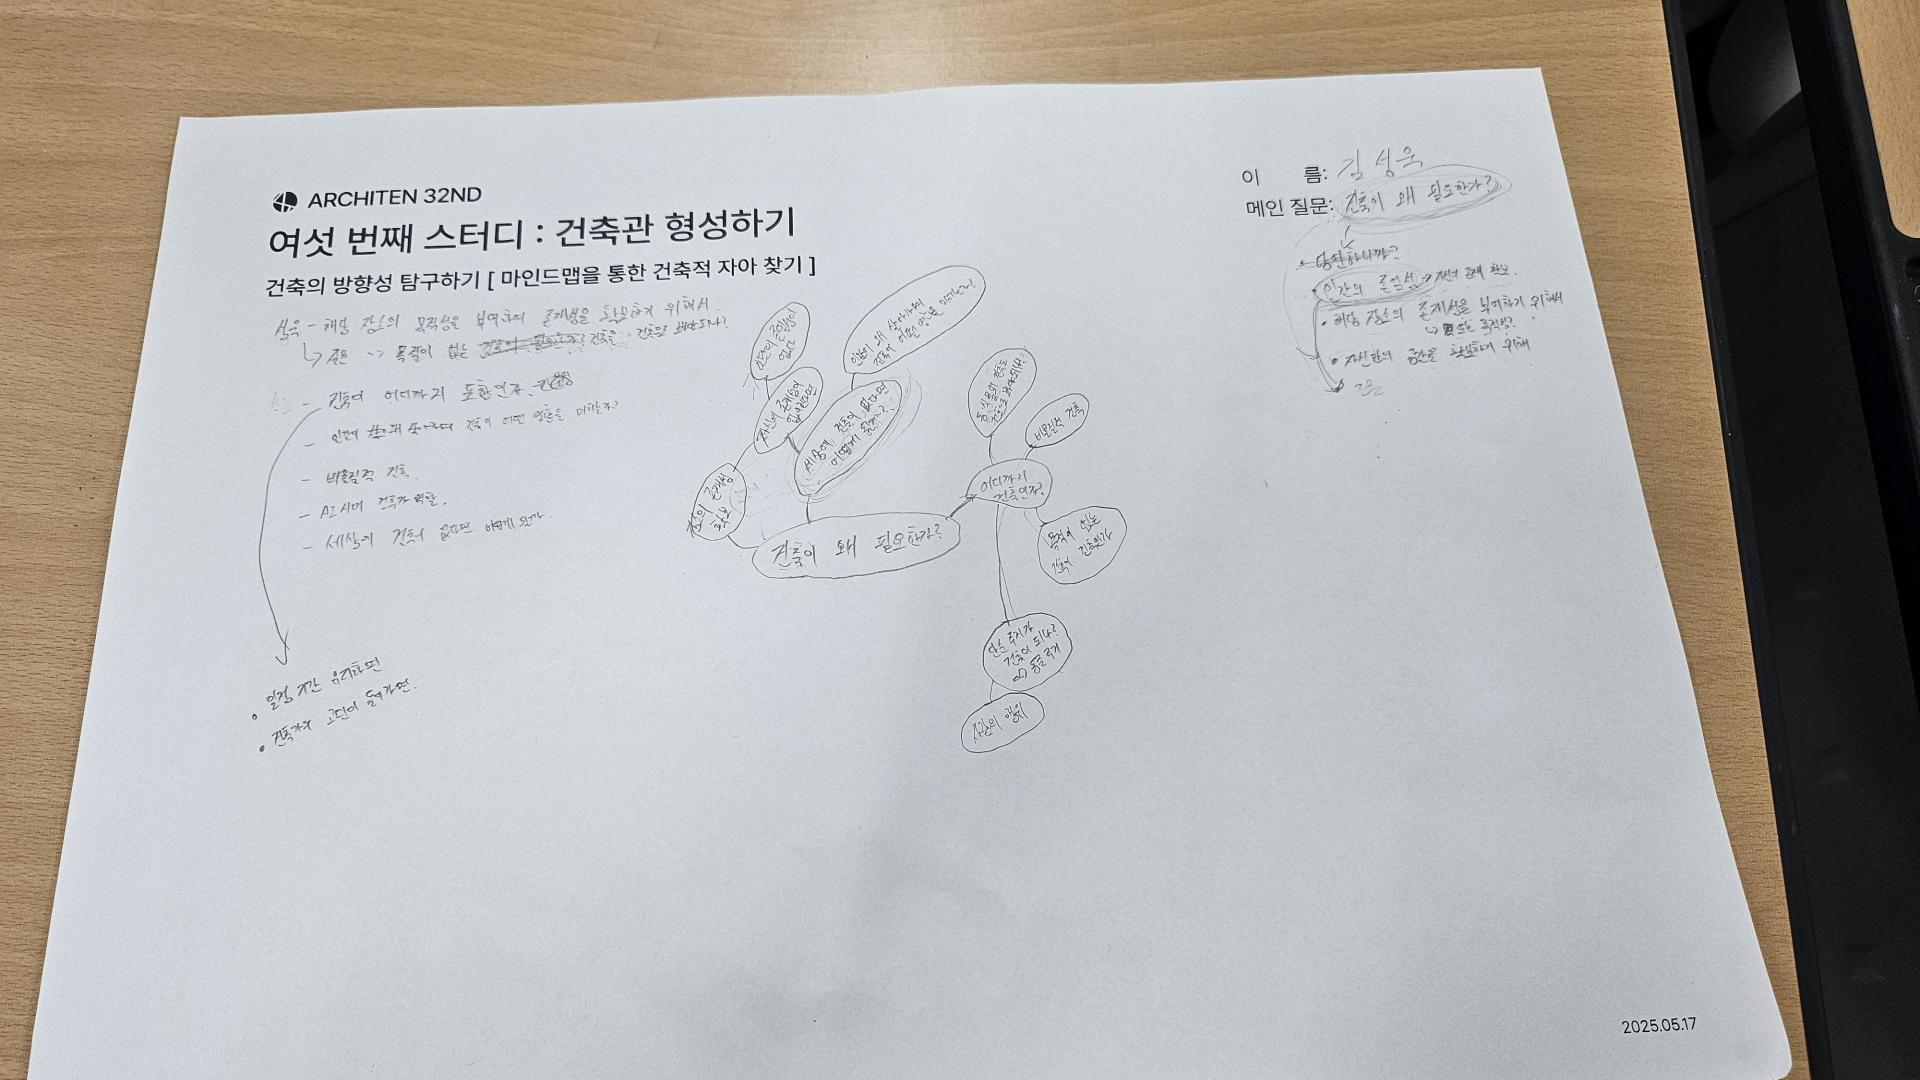 ARCHITEN 32ND
여섯 번째 스터디 : 건축관 형성하기
건축의 방향성 탐구하기 [ 마인드맵을 통한 건축적 자아 찾기 ]
이 름: 김성욱
메인 질문: 건축이 왜 필요한가?
당연하니까?
인간의 존엄성 → 자신의 존재 확보.
해당 장소의 존재성을 부여하기 위해서
또는 목적성?
자신만의 공간을 확보하기 위해
성욱 - 해당 장소의 목적성을 부여하여 존재성을 확보하기 위해서.
질문 → 목적이 없는 건축은 건축으로 봐야되나?
- 건축이 어디까지 포함인가.
- 인간이 살아가며 건축이 어떤 영향을 미치는가?
- 비물질적 건축.
- AI시대 건축가 역할.
- 세상에 건축이 없다면 어떻게 됐나.
일정 기간 유지하면
건축가의 고민이 들어가면.
인간의 존엄성이 없다
인간이 왜 살아가며 건축이 어떤 영향을 미치는가?
자신의 존재성이 없어진다면
세상에 건축이 없다면 어떻게 됐는가?
존재성 확보
건축이 왜 필요한가?
비물질적 건축
어디까지 건축인가?
목적이 있는 건축이 건축인가
단순 주거가 건축이 되나?
ex) 동굴 주거
2025.05.17